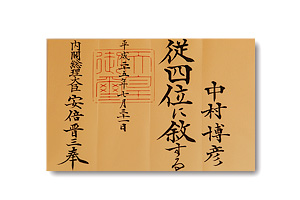 中村博彦
従四位に叙する
平成二十五年七月三十一日
天皇御璽
内閣総理大臣 安倍晋三奉